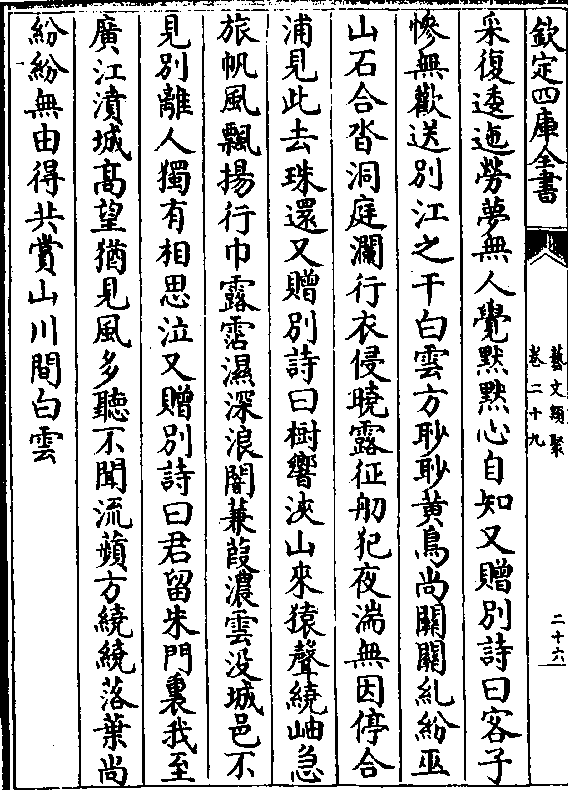 欽定四庫全書
藝文類聚
卷二十九
二十六
采復逶迤勞夢無人覺黙黙心自知又贈別詩曰客子
慘無歡送別江之干白雲方眇眇黄鳥尚關關糺紛巫
山石合沓洞庭瀾行衣侵曉露征舠犯夜湍無因停合
浦見此去珠還又贈別詩曰樹響浹山來猿聲繞岫急
旅帆風飄揚行巾露霑濕深浪闇蒹葭濃雲没城邑不
見別離人獨有相思泣又贈別詩曰君留朱門裏我至
廣江濆城髙望猶見風多聽不聞流蘋方繞繞落葉尚
紛紛無由得共賞山川間白雲